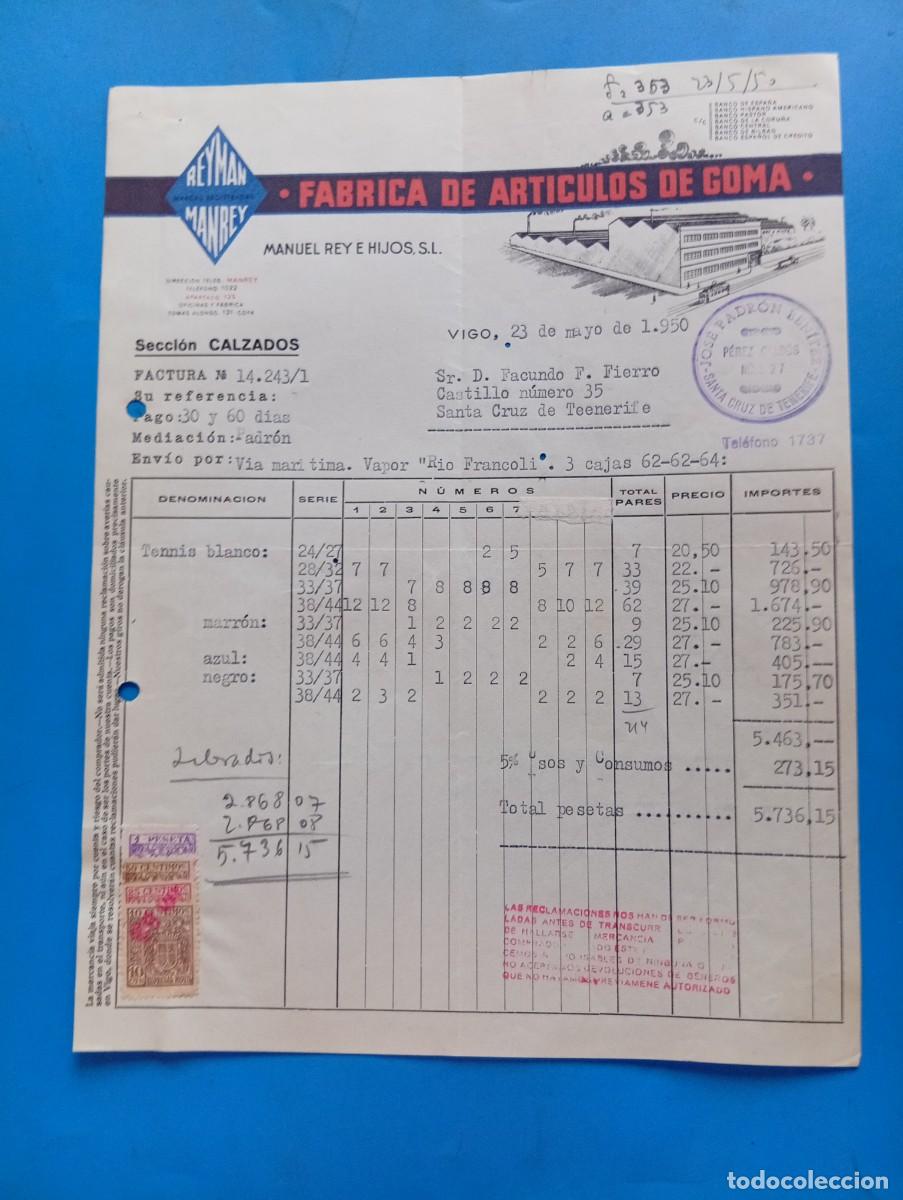 23/5/50
BANCO DE ESPAÑA
BANCO HISPANO AMERICANO
BANCO PASTOR
BANCO DE LA CORUÑA
BANCO CENTRAL
BANCO DE BILBAO
BANCO ESPAÑOL DE CREDITO
C/C
REYMAN
MARCAS REGISTRADAS
MANREY
• FABRICA DE ARTICULOS DE GOMA •
MANUEL REY E HIJOS, S.L.
DIRECCION TELEG. MANREY
TELEFONO 1022
APARTADO 135
OFICINAS Y FABRICA
TOMAS ALONSO, 131 - COYA
VIGO, 23 de mayo de 1.950
JOSE PADRÓN BENÍTEZ
PÉREZ
SANTA CRUZ DE TENERIFE
Teléfono 1737
Sección CALZADOS
FACTURA № 14.243/1
Su referencia:
Pago:30 y 60 dias
Mediación:Padrón
Sr. D. Facundo F. Fierro
Castillo número 35
Santa Cruz de Teenerife
Envío por:Via maritima. Vapor "Rio Francoli". 3 cajas 62-62-64:
DENOMINACION SERIE NÚMEROS TOTAL PARES PRECIO IMPORTES
1 2 3 4 5 6 7
Tennis blanco: 24/27 2 5 7 20,50 143.50
28/32 7 7 5 7 7 33 22.- 726.-
33/37 7 8 8 8 8 39 25.10 978,90
38/44 12 12 8 8 10 12 62 27.- 1.674.-
marrón: 33/37 1 2 2 2 2 9 25.10 225.90
38/44 6 6 4 3 2 2 6 29 27.- 783.-
azul: 38/44 4 4 1 2 4 15 27.- 405.-
negro: 33/37 1 2 2 2 7 25.10 175,70
38/44 2 3 2 2 2 2 13 27.- 351.-
214
5.463,--
5% Usos y Consumos ..... 273,15
Total pesetas .......... 5.736,15
Librados:
2.868 07
2.868 08
5.736 15
1 PESETA
50 CENTIMOS
25 CENTIMOS
10 10
LAS RECLAMACIONES NOS HAN DE SER FORMU
LADAS ANTES DE TRANSCURR
DE HALLARSE MERCANCIA
CEMOS NINGUNA
NO ACEPTAMOS DEVOLUCIONES DE GENEROS
QUE NO HAYAMOS PREVIAMENE AUTORIZADO
La mercancía viaja siempre por cuenta y riesgo del comprador.—No será admitida ninguna reclamación sobre averías cau-
sadas en el transporte, ni aún en el caso de ser los portes de nuestra cuenta.—Los pagos son domiciliados precisamente
en Vigo, donde se resolverán cuantas reclamaciones pudieran dar lugar.—Nuestros giros no derogan la cláusula anterior.
todocoleccion